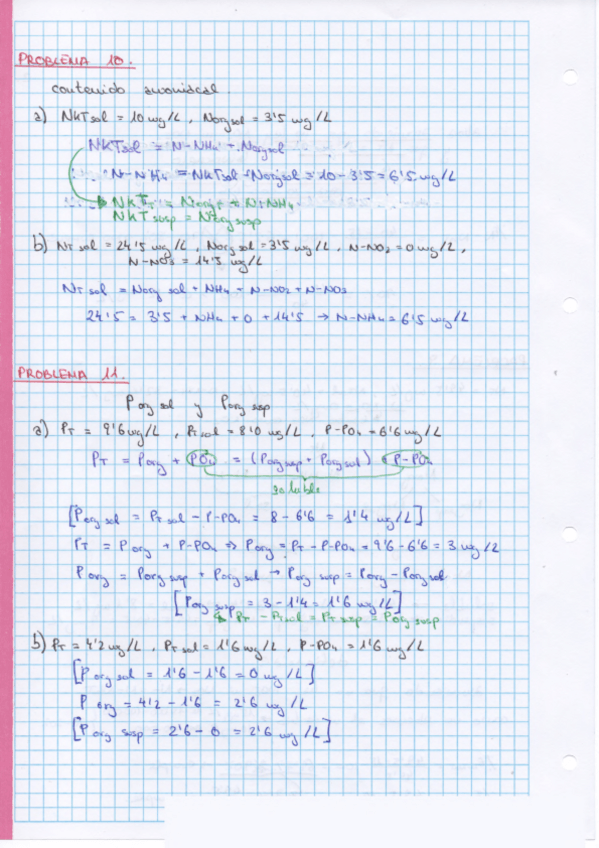 PROBLEMA 10.
contenido amoniacal.
a) NKTsol = 10 mg/L, Norg sol = 3'5 mg/L
NKTsol = N-NH4 + Norgsol
N-NH4 = NKTsol - Norgsol = 10 - 3'5 = 6'5 mg/L
NKTT = NorgT + N-NH4
NKTsusp = Norg susp
b) NT sol = 24'5 mg/L, Norg sol = 3'5 mg/L, N-NO2 = 0 mg/L,
N-NO3 = 14'5 mg/L
NT sol = Norg sol + NH4 + N-NO2 + N-NO3
24'5 = 3'5 + NH4 + 0 + 14'5 → N-NH4 = 6'5 mg/L
PROBLEMA 11.
Porg sol y Porg susp
a) PT = 9'6 mg/L, PTsol = 8'0 mg/L, P-PO4 = 6'6 mg/L
PT = Porg + PO4 = (Porgsusp + Porgsol) + P-PO4
soluble
[Porg sol = PTsol - P-PO4 = 8 - 6'6 = 1'4 mg/L]
PT = Porg + P-PO4 ⇒ Porg = PT - P-PO4 = 9'6 - 6'6 = 3 mg/L
Porg = Porg susp + Porg sol → Porg susp = Porg - Porgsol
[Porg susp = 3 - 1'4 = 1'6 mg/L]
PT - PTsol = PTsusp = Porg susp
b) PT = 4'2 mg/L, PTsol = 1'6 mg/L, P-PO4 = 1'6 mg/L
[Porg sol = 1'6 - 1'6 = 0 mg/L]
Porg = 4'2 - 1'6 = 2'6 mg/L
[Porg susp = 2'6 - 0 = 2'6 mg/L]